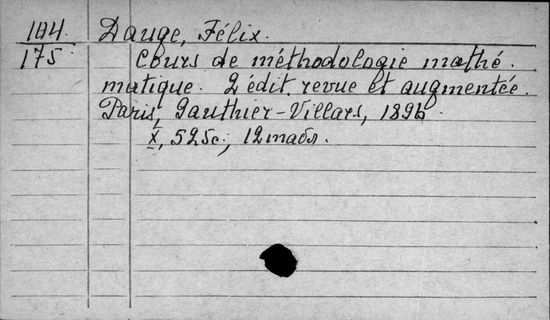 104. Dauge, Félix.
175 Cours de méthodologie mathé-
matique. 2 édit. revue et augmentée.
Paris, Gauthier-Villars, 1896.
X, 525c., 12